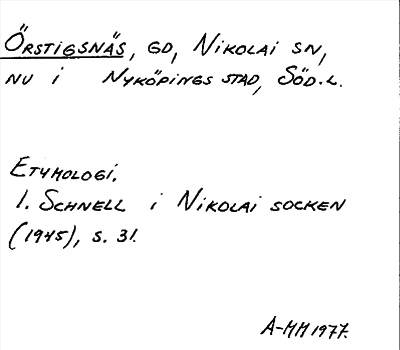 Örstigsnäs, gd, Nikolai sn,
nu i Nyköpings stad, Söd. l.
Etymologi.
I. Schnell i Nikolai socken
(1945), s. 31.
A-MM 1977.